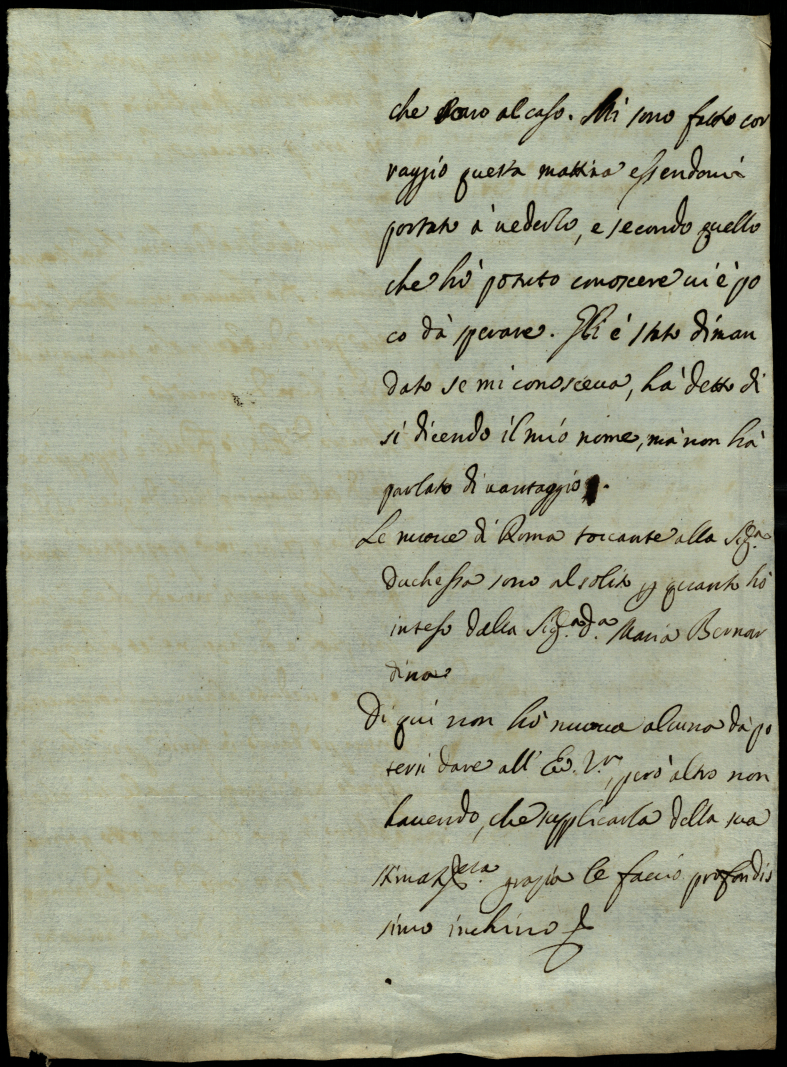 che sono al caso. Mi sono fatto cor
raggio questa mattina essendomi
portato à vederlo, e secondo quello
che hò potuto conoscere vi è po
co dà sperare. Gli è stato diman
dato se mi conosceva, hà detto di
si dicendo il mio nome, mà non hà
parlato di vantaggio.
Le nuove di Roma toccante alla Sig.ra
Duchessa sono al solito p quanto hò
inteso dalla Sig.a d.a Maria Bernar
dina
Di qui non hò nuova alcuna dà po
tersi dare all' E. V.ra, però altro non
havendo, che supplicarla della sua
stimat.a grazia le faccio profondis
simo inchino